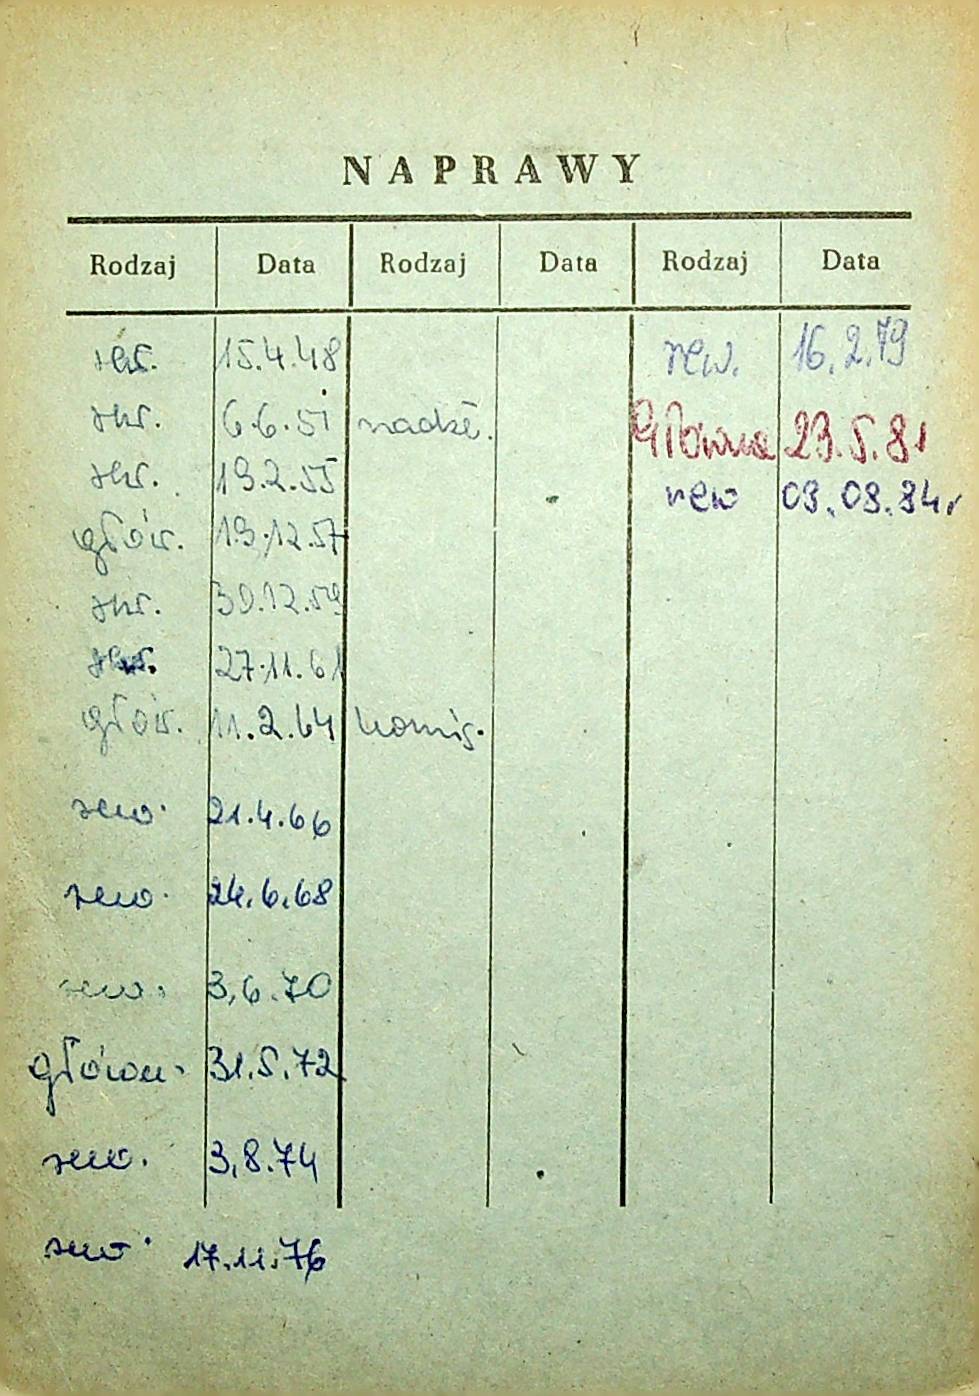 NAPRAWY
Rodzaj Data Rodzaj Data Rodzaj Data
15.4.48 rew. 16.2.79
śr. 6.6.51 nadzw. Główna 23.5.81
śr. 19.2.55 rew 09.08.84r
głów. 19.12.57
śr. 30.12.59
27.11.61
głów. 11.2.64 komis.
rew. 21.4.66
rew. 24.6.68
rew. 3.6.70
główn. 31.5.72
rew. 3.8.74
rew. 17.11.76